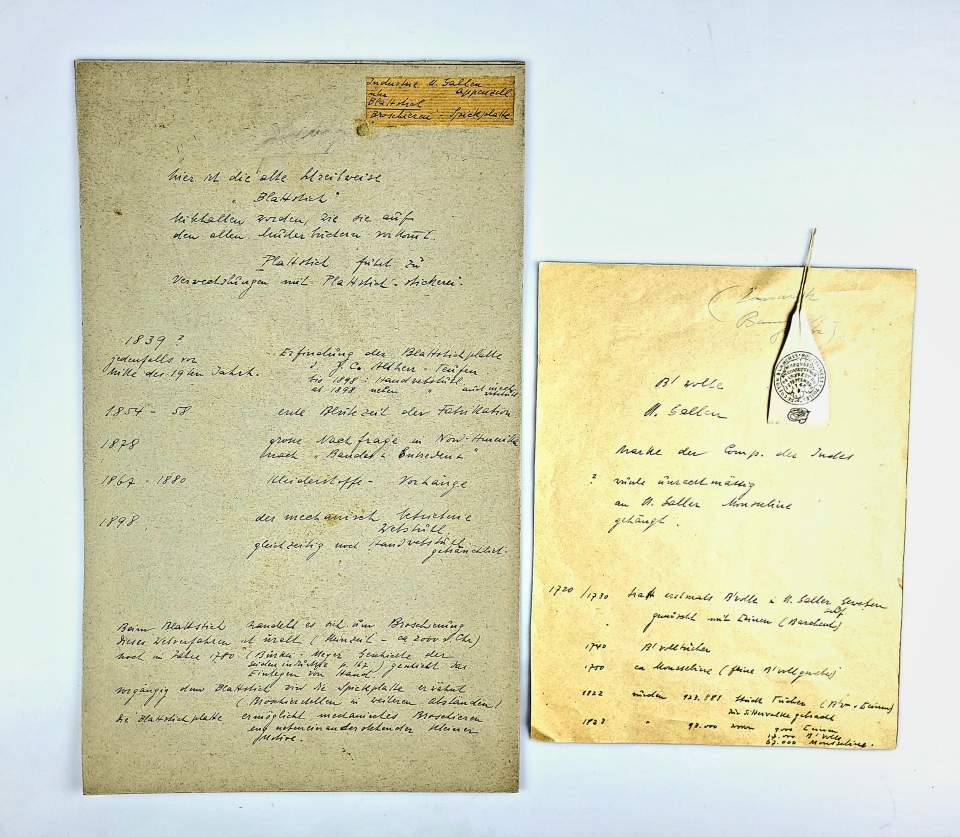 Industrie St. Gallen
Appenzell
über
Blattstich
Broschieren - Spickplatte
hier ist die alte Schreibweise
"Blattstich"
beibehalten worden, wie sie auf
den alten Musterbüchern vorkommt.
Plattstich führt zu
Verwechslungen mit Plattstich-stickerei.
1839 ?
jedenfalls vor
Mitte des 19ten Jahrh.
Erfindung der Blattstichplatte
d. J. C. Altherr - Teufen
bis 1898 : Handwebstühle
ab 1898 neben " auch mech
1854 - 58 erste Blütezeit der Fabrikation
1878 grosse Nachfrage in Nord-Amerika
nach "Bandes & Entredeux"
1867 - 1880 Kleiderstoffe - Vorhänge
1898 der mechanisch betriebene
Webstuhl
gleichzeitig noch Handwebstühle
gebräuchlich.
Beim Blattstich handelt es sich um Broschierung
dieses Webverfahren ist uralt ( - ca 2000 v. Chr)
noch im Jahre 1780 (Bürkli - Meyer Geschichte der
Seidenindustrie p. 167) geschieht das
Einlegen von Hand.
vorgängig dem Blattstich wird die Spickplatte erwähnt
(Broschierstellen in weiteren Abständen)
die Blattstichplatte ermöglicht mechanisches Broschieren
eng nebeneinanderstehender kleiner
Motive.
B'wolle
St. Gallen
Marke der Comp. des Indes
? wurde unrechtmässig
an St. Galler Mousseline
gehängt.
1720/1730 statt erstmals B'wolle in St. Galler Geweben
auf
" gemischt mit Leinen (Barchent)
1740 B'wolltücher
1750 ca Mousseline (feine B'wollgewebe)
1822 wurden 123.881 Stück Tücher (B'w. + Leinen)
zur gebracht
1823 " 97.000 wovon 900 Leinen
B'wolle
Mousseline.